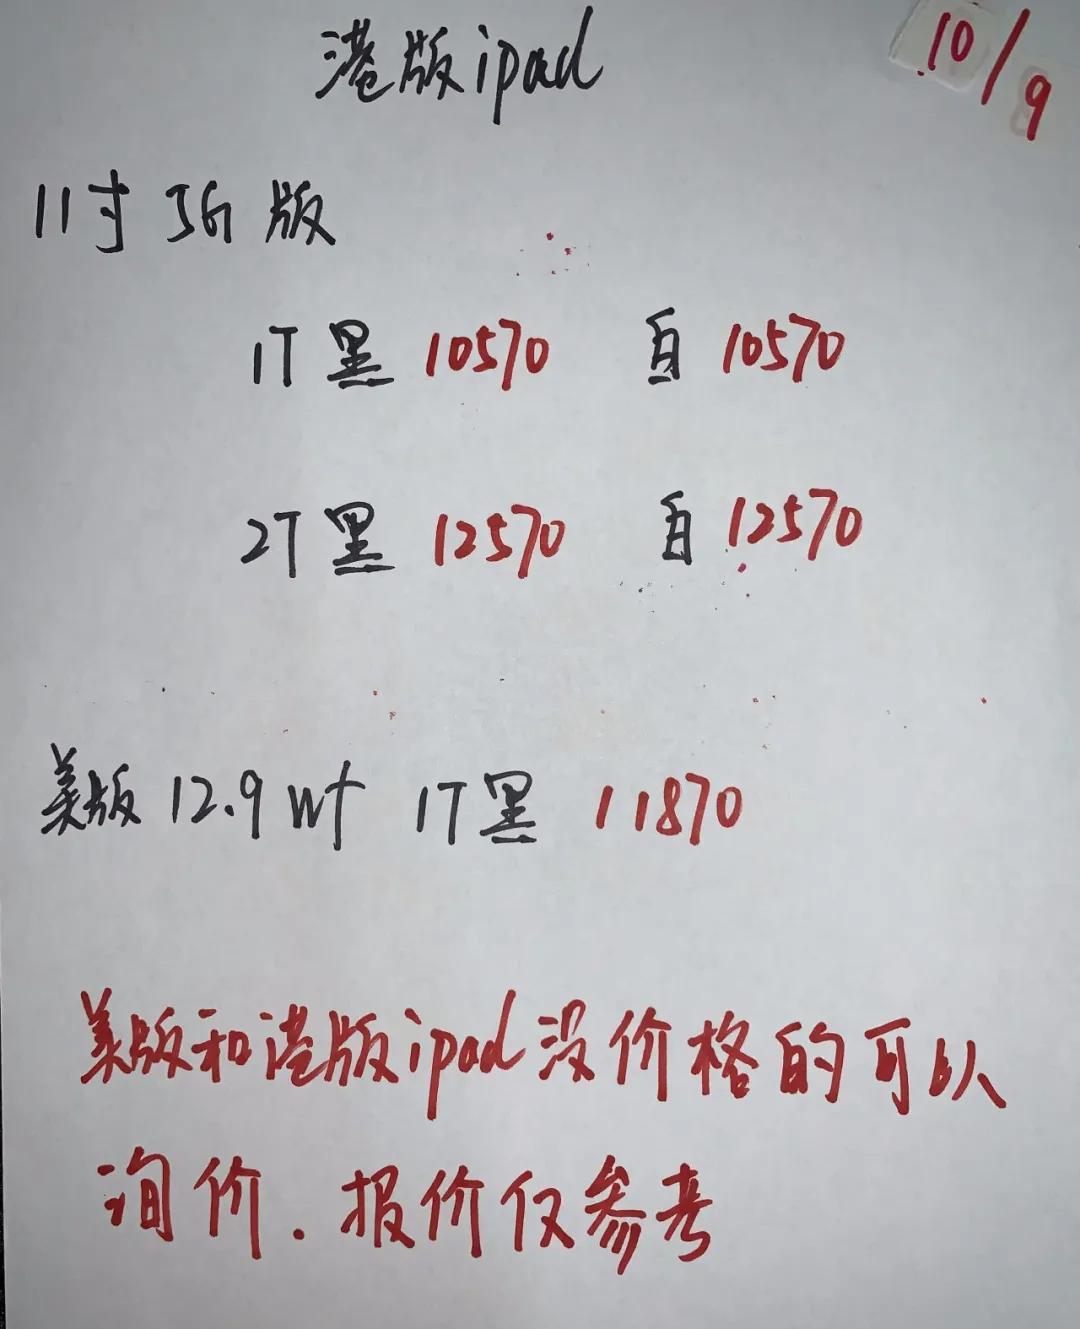 港版ipad
10/9
11寸 5G 版
1T 黑 10570 白 10570
2T 黑 12570 白 12570
美版 12.9 wf 1T 黑 11870
美版和港版ipad没价格的可以
询价.报价仅参考